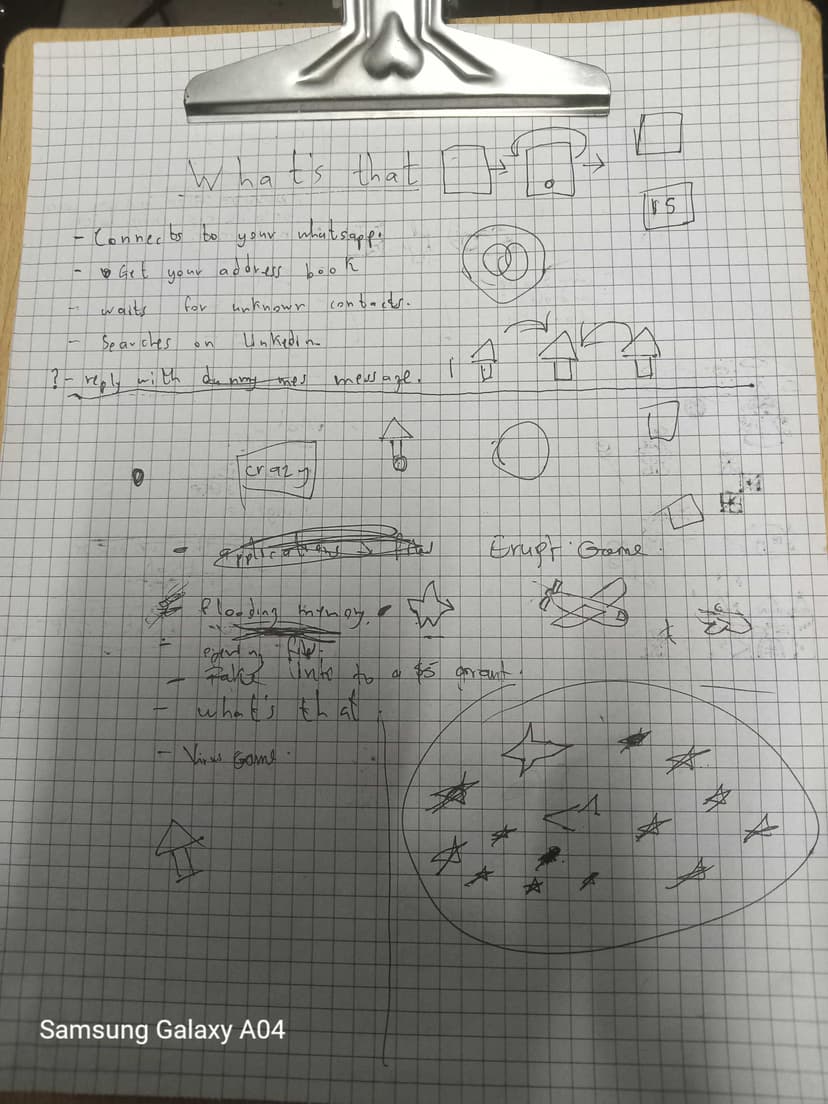 What's that
rs
- Connects to your whatsapp.
- Get your address book
- waits for unknown contacts.
- Searches on Linkedin
? - reply with dummy mes message.
crazy
- applications → files
Erupt Game.
flooding
- Fake link to a $5 grant.
- what's that
- Virus Game.
Samsung Galaxy A04